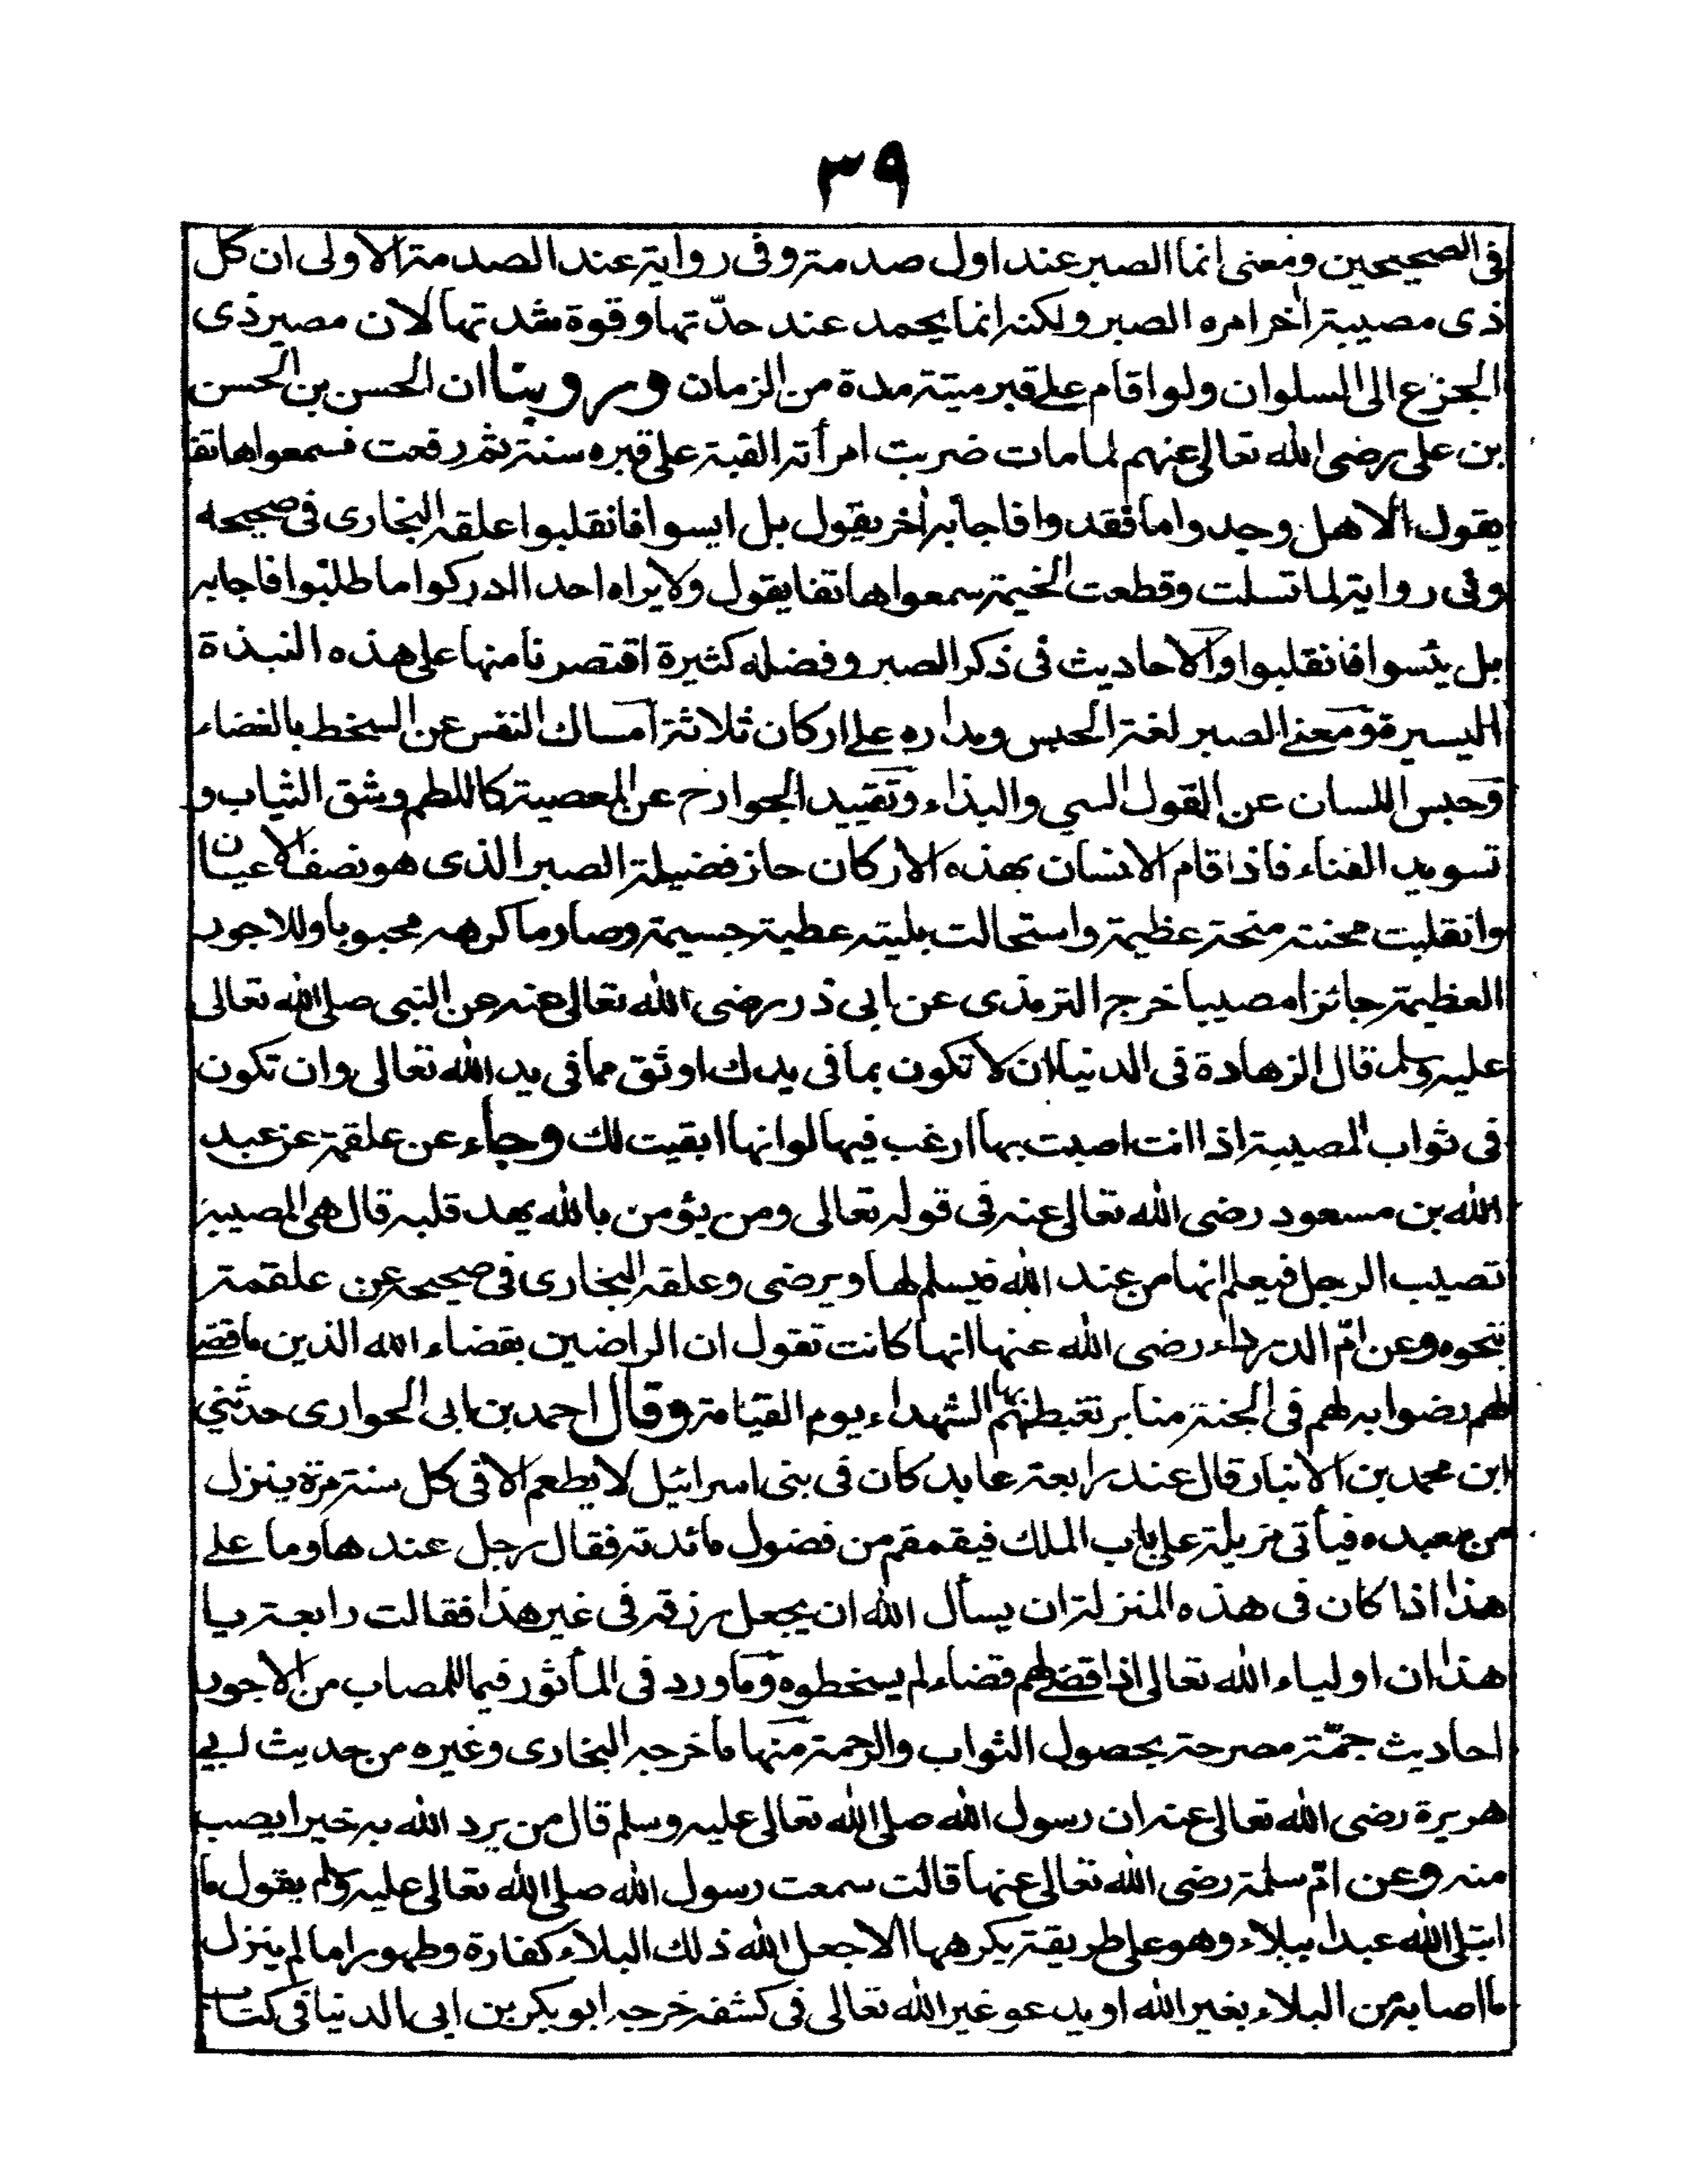 ٣٩
فى الصحيحين ومعنى انما الصبر عند اول صدمة وفى رواية عند الصدمة الاولى ان كل
ذى مصيبة اخر امره الصبر ولكنه انما يحمد عند حدّتها وقوة شدتها لان مصير ذى
الجزع الى السلوان ولو اقام على قبر ميتة مدة من الزمان وروينا ان الحسن بن الحسن
بن على رضى الله تعالى عنهم لما مات ضربت امرأته القبة على قبره سنة ثم رفعت فسمعوا هاتفا
يقول الاهل وجدوا ما فقدوا فاجابه اخر يقول بل ايسوا فانقلبوا علقه البخارى فى صحيحه
وفى رواية لما تسلت وقطعت الخيمة سمعوا هاتفا يقول ولا يراه احد الدركوا ما طلبوا فاجابه
بل يئسوا فانقلبوا والاحاديث فى ذكر الصبر وفضله كثيرة اقتصرنا منها على هذه النبذة
اليسيرة ومعنى الصبر لغة الحبس ومداره على اركان ثلاثة امساك النفس عن السخط بالقضاء
وحبس اللسان عن القول السي والبذاء وتقييد الجوارح عن المعصية كاللطم وشق الثياب و
تسويد الفناء فاذا قام الانسان بهذه الاركان حاز فضيلة الصبر الذى هو نصف الاعيان
وانقلبت محنته منحة عظيمة واستحالت بليته عطية جسيمة وصار ما كرهه محبوبا وللاجور
العظيمة جائزا مصيبا خرج الترمذى عن ابى ذر رضى الله تعالى عنه عن النبى صلى الله تعالى
عليه وسلم قال الزهادة فى الدنيا ان لا تكون بما فى يدك اوثق مما فى يد الله تعالى وان تكون
فى ثواب المصيبة اذا انت اصبت بها ارغب فيها لو انها ابقيت لك وجاء عن علقمة عن عبد
الله بن مسعود رضى الله تعالى عنه فى قوله تعالى ومن يؤمن بالله يهد قلبه قال هى المصيبة
تصيب الرجل فيعلم انها من عند الله فيسلم لها ويرضى وعلقه البخارى فى صحيحه عن علقمة
بنحوه وعن امّ الدرداء رضى الله عنها انها كانت تقول ان الراضين بقضاء الله الذين ما قضى
لهم رضوا به لهم فى الجنة منابر تغبطهم بها الشهداء يوم القيامة وقال احمد بن ابى الحوارى حدثنى
ابن محمد بن الانبار قال عند رابعة عابد كان فى بنى اسرائيل لا يطعم الا فى كل سنة مرة ينزل
من معبده فيأتى مزبلة على باب الملك فيقمقم من فضول مائدته فقال رجل عندها وما على
هذا اذا كان فى هذه المنزلة ان يسأل الله ان يجعل رزقه فى غير هذا فقالت رابعة يا
هذا ان اولياء الله تعالى اذا قضى لهم قضاء لم يسخطوه وما ورد فى المأثور فيما للمصاب من الاجور
احاديث جمّة مصرحة بحصول الثواب والرحمة منها ما خرجه البخارى وغيره من حديث ابى
هريرة رضى الله تعالى عنه ان رسول الله صلى الله تعالى عليه وسلم قال من يرد الله به خيرا يصب
منه وعن امّ سلمة رضى الله تعالى عنها قالت سمعت رسول الله صلى الله تعالى عليه وسلم يقول ما
ابتلى الله عبدا ببلاء وهو على طريقة يكرهها الا جعل الله ذلك البلاء كفارة وطهورا ما لم ينزل
ما اصابه من البلاء بغير الله او يدعو غير الله تعالى فى كشفه خرجه ابو بكر بن ابى الدنيا فى كتاب